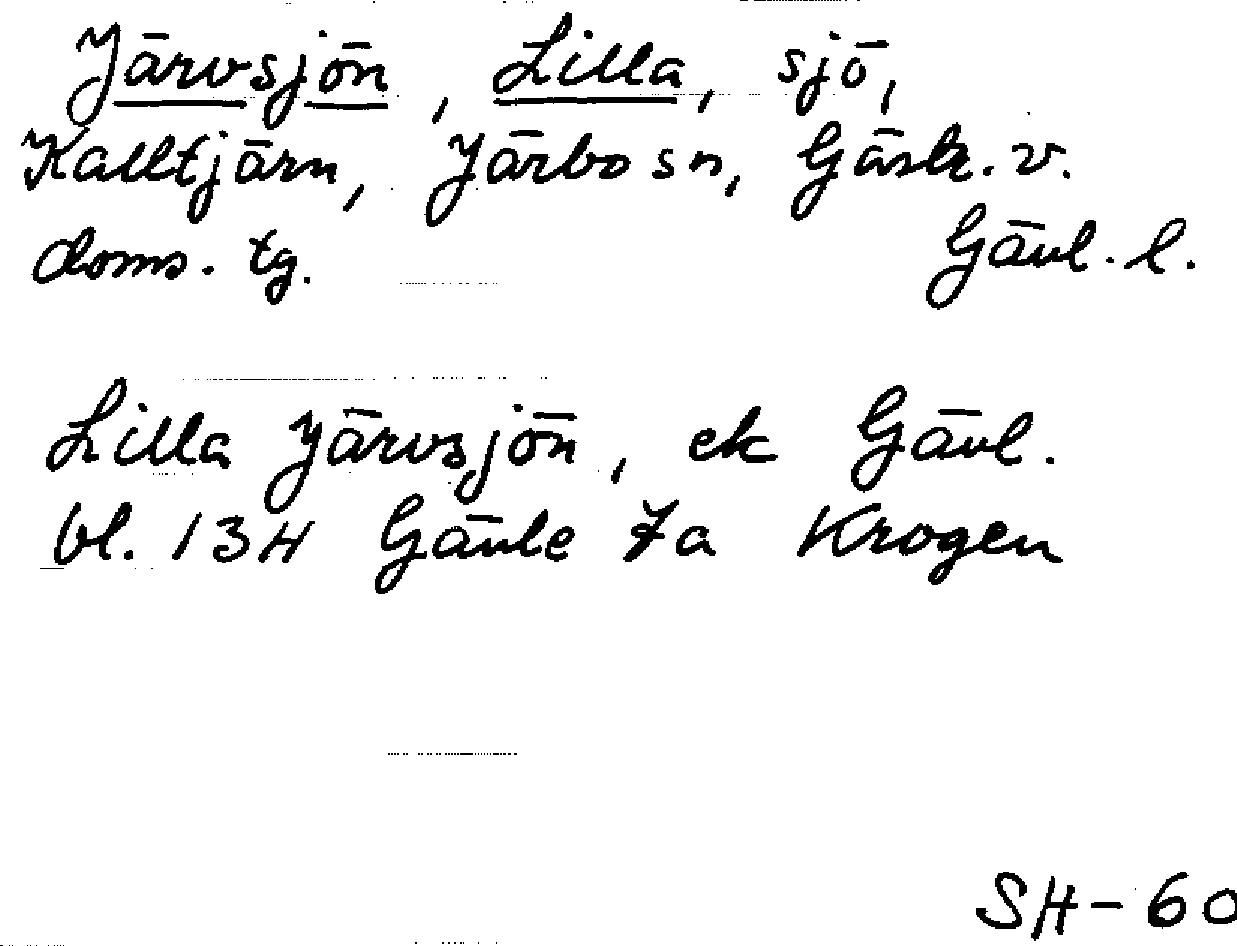 Järvsjön, Lilla, sjö,
Kalltjärn, Järbo sn, Gästr. v.
doms. tg. Gävl. l.
Lilla Järvsjön, ek Gävl.
bl. 13H Gävle 7a Krogen
SH-60